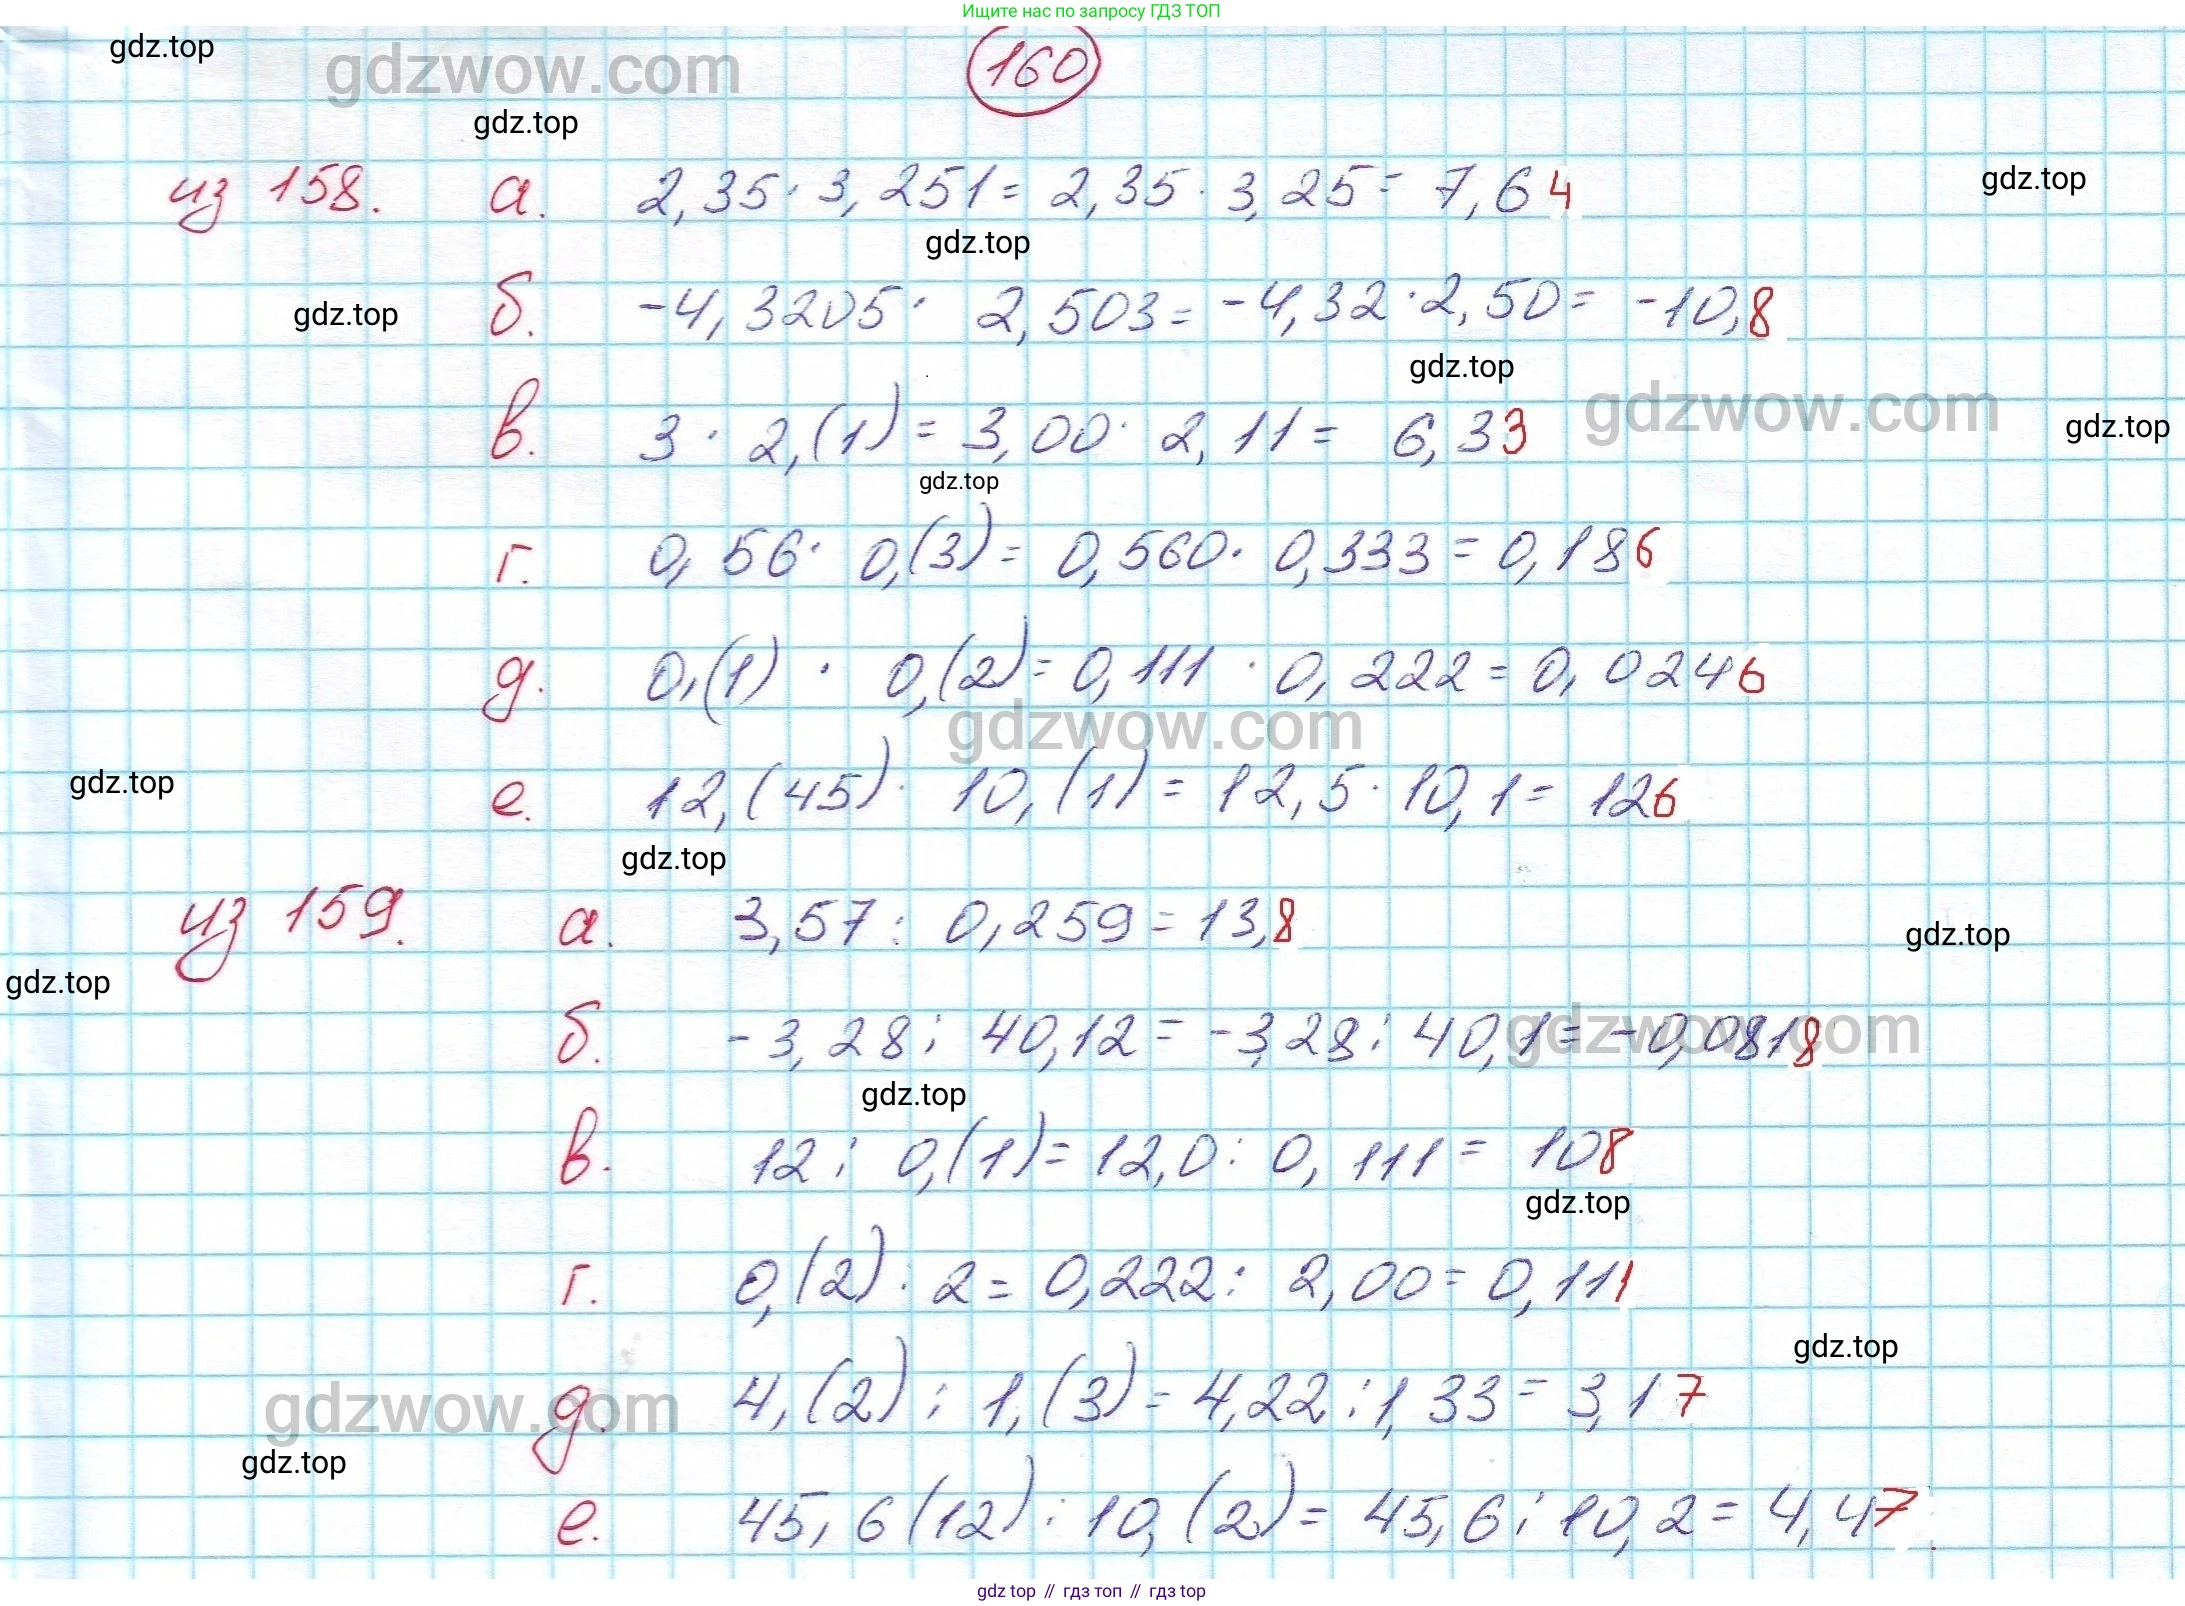 Ищите нас по запросу ГДЗ ТОП
160
gdz.top
gdzwow.com
gdz.top
из 158. а. 2,35 · 3,251 = 2,35 · 3,25 = 7,64
gdz.top
gdz.top
б. -4,3205 · 2,503 = -4,32 · 2,50 = -10,8
gdz.top
gdz.top
gdzwow.com
в. 3 · 2,(1) = 3,00 · 2,11 = 6,33
gdz.top
gdz.top
г. 0,56 · 0,(3) = 0,560 · 0,333 = 0,186
д. 0,(1) · 0,(2) = 0,111 · 0,222 = 0,0246
gdzwow.com
gdz.top
е. 12,(45) · 10,(1) = 12,5 · 10,1 = 126
gdz.top
из 159. а. 3,57 : 0,259 = 13,8
gdz.top
gdz.top
б. -3,28 : 40,12 = -3,28 : 40,1 = -0,0818
gdzwow.com
gdz.top
в. 12 : 0,(1) = 12,0 : 0,111 = 108
gdz.top
г. 0,(2) : 2 = 0,222 : 2,00 = 0,111
gdz.top
д. 4,(2) : 1,(3) = 4,22 : 1,33 = 3,17
gdzwow.com
gdz.top
е. 45,6(12) : 10,(2) = 45,6 : 10,2 = 4,47
gdz top // гдз топ // гдз top